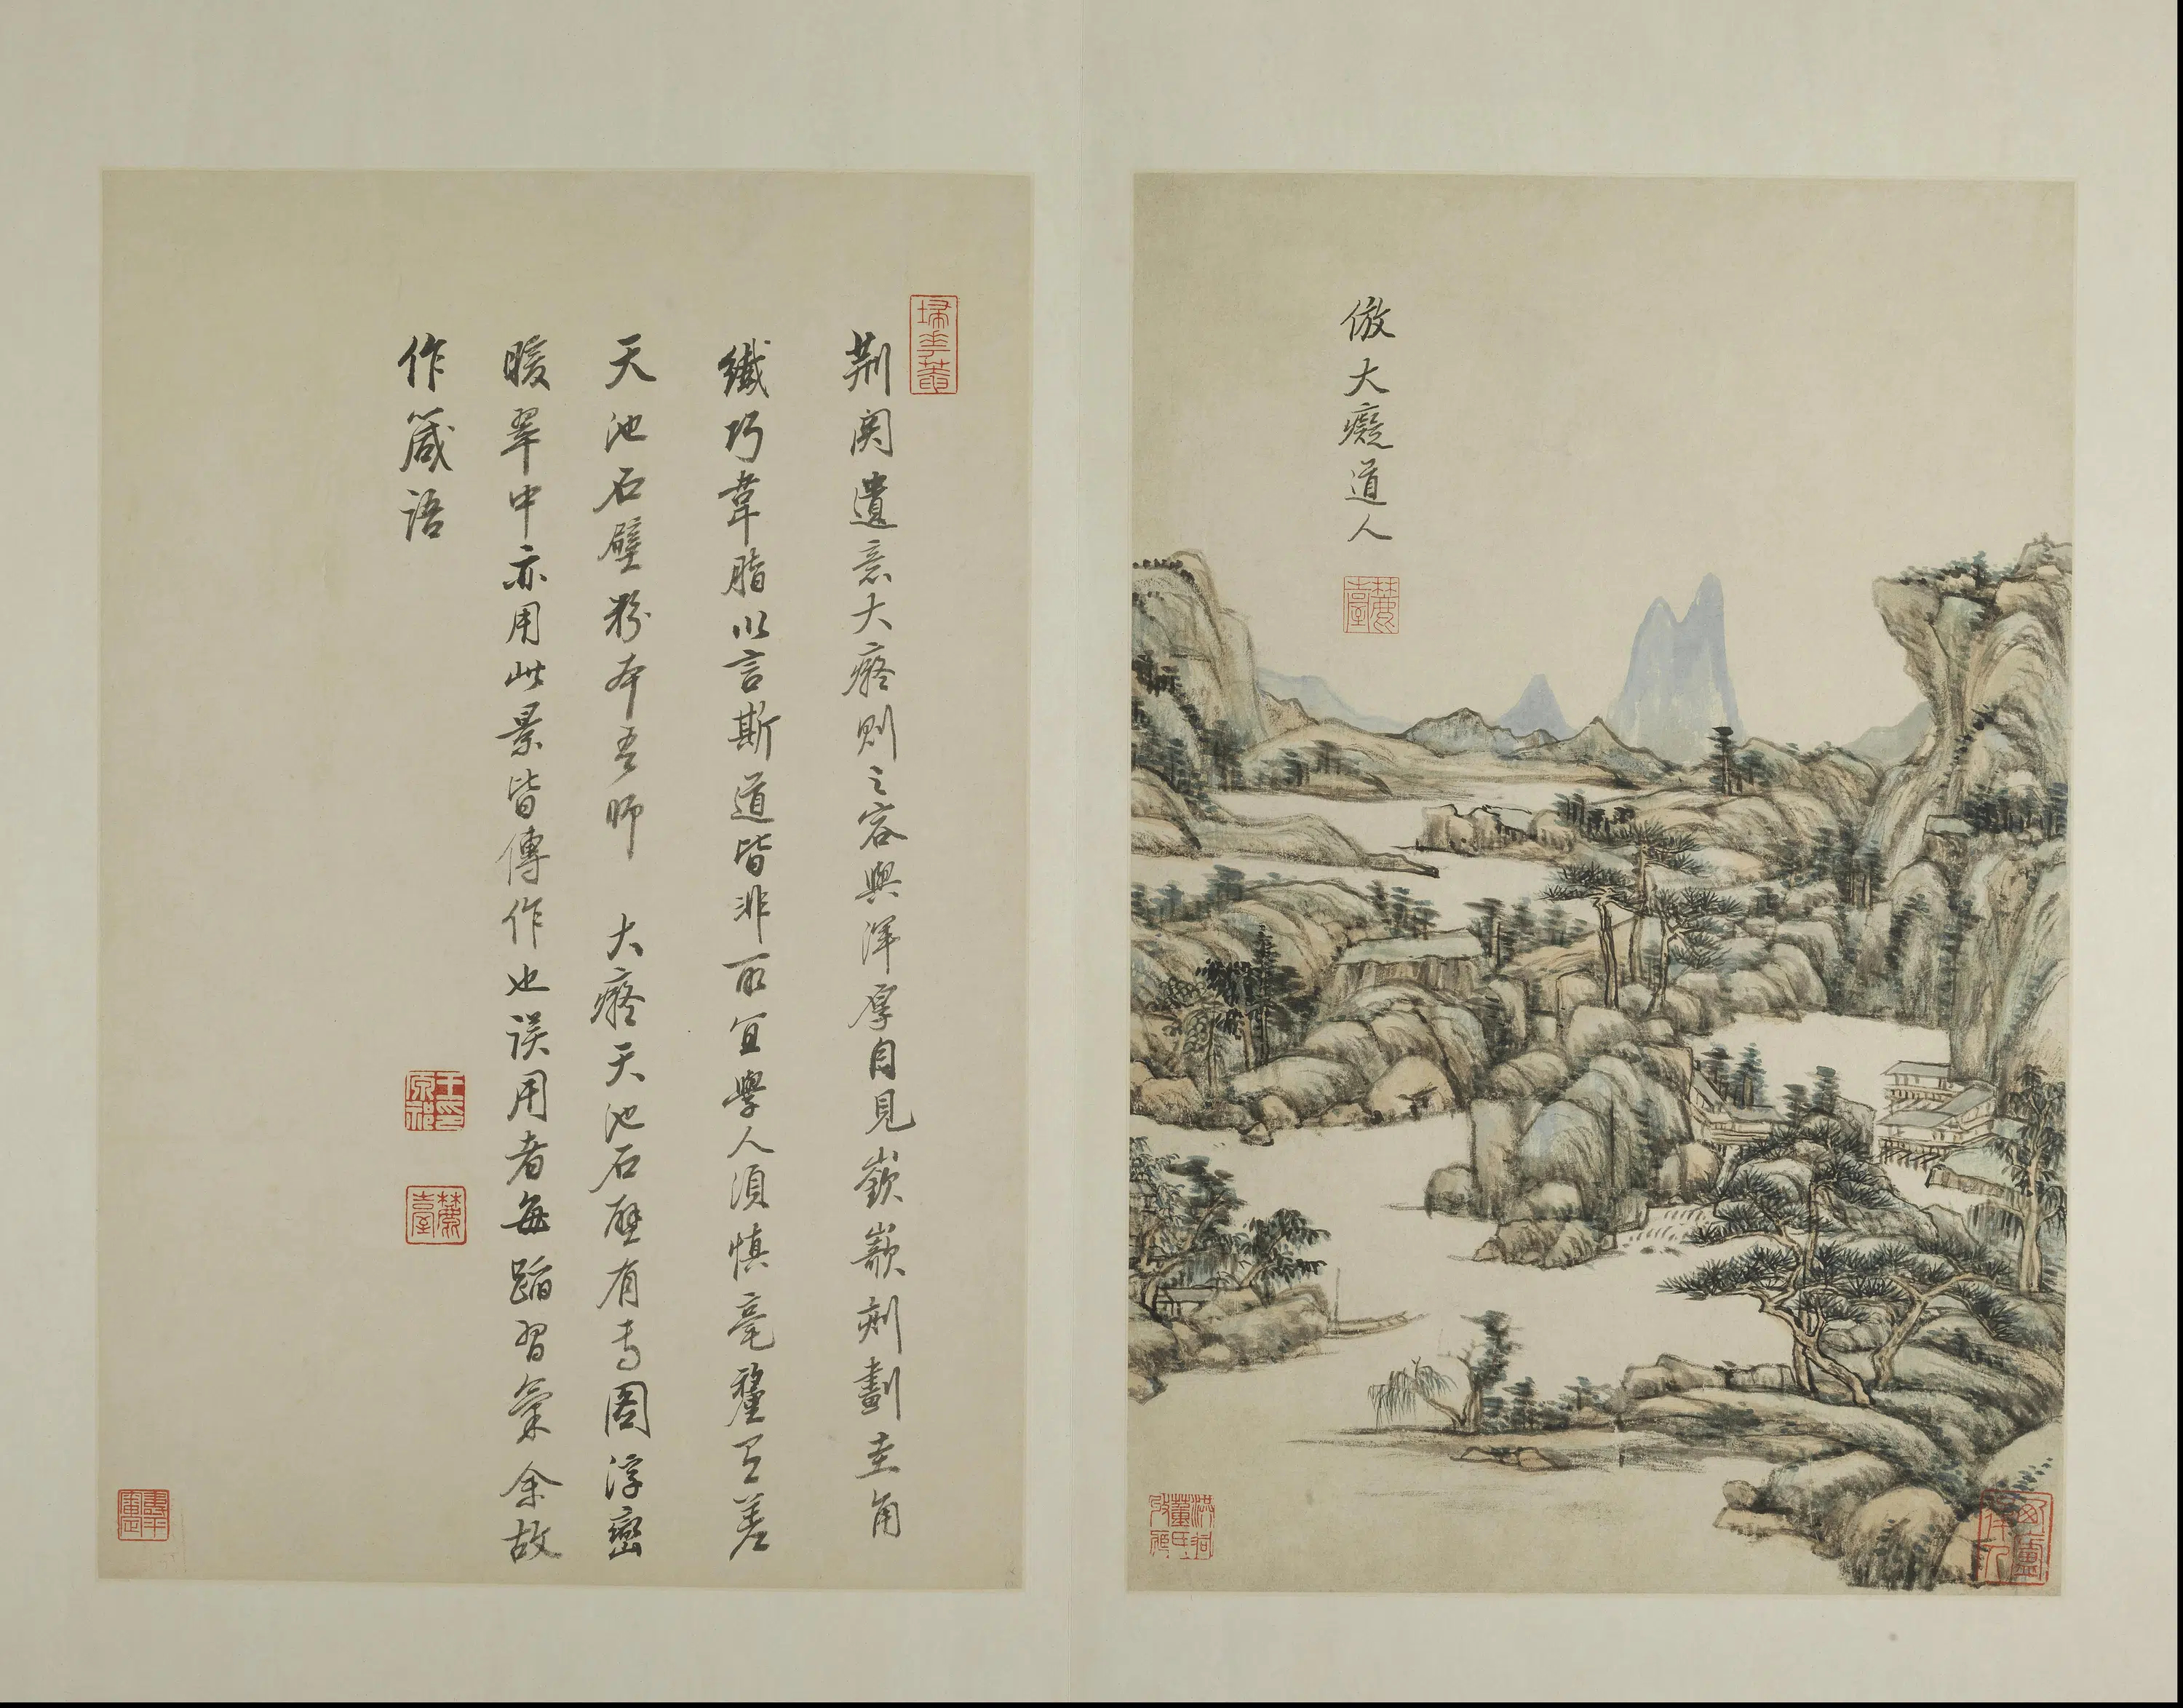 倣大癡道人
麓臺
掃華庵
荆関遺意大癡則之容與渾厚自見嶔嶔刻劃圭角
纖巧韋脂以言斯道皆非所宜學人須慎毫釐有差
天池石壁粉本吾師 大癡天池石壁有專圖浮巒
暖翠中亦用此景皆傳作也誤用者每蹈習氣余故
作箴語
王原祁印
麓臺